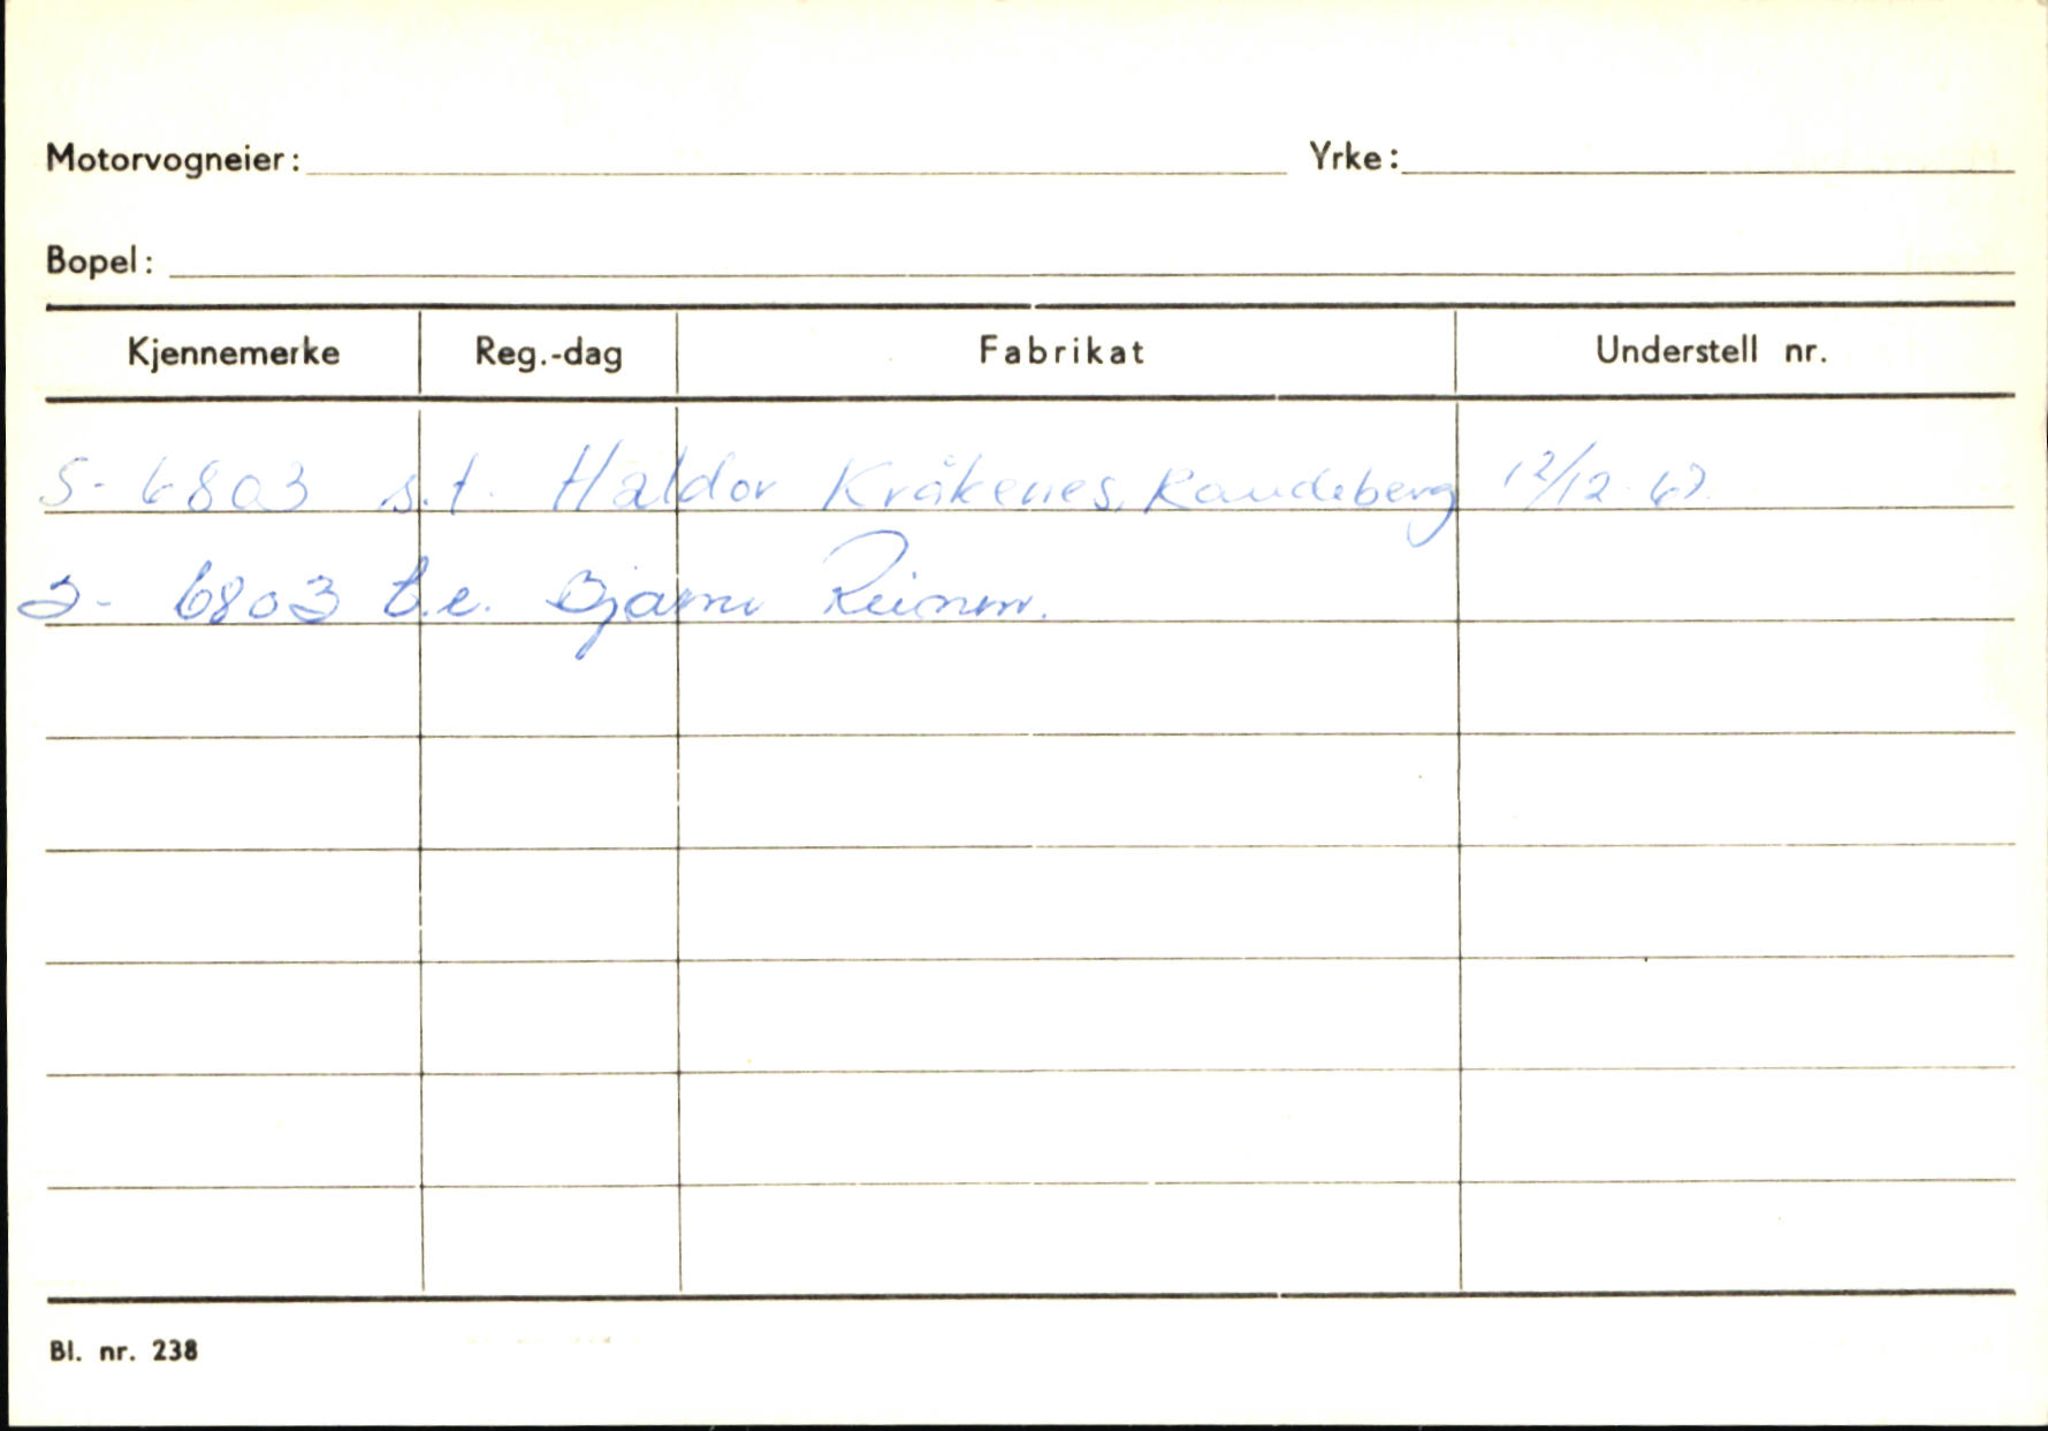 Motorvogneier: Yrke:
Bopel:
Kjennemerke Reg.-dag Fabrikat Understell nr.
S- 6803 s.t. Haldor Kråkenes, Raudeberg 12/12-67.
6803 t.e. Bjarne
Bl. nr. 238